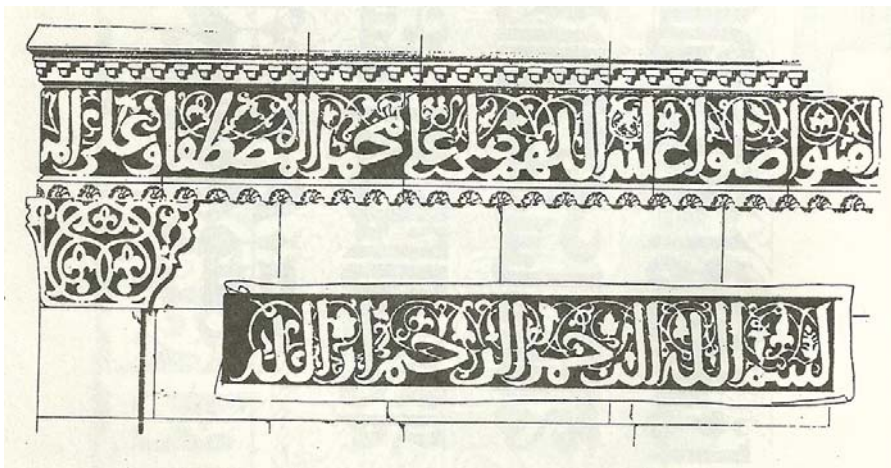 امنوا صلوا عليه اللهم صلى على محمد المصطفا وعلى الم
بسم الله الرحمن الرحيم ان الله